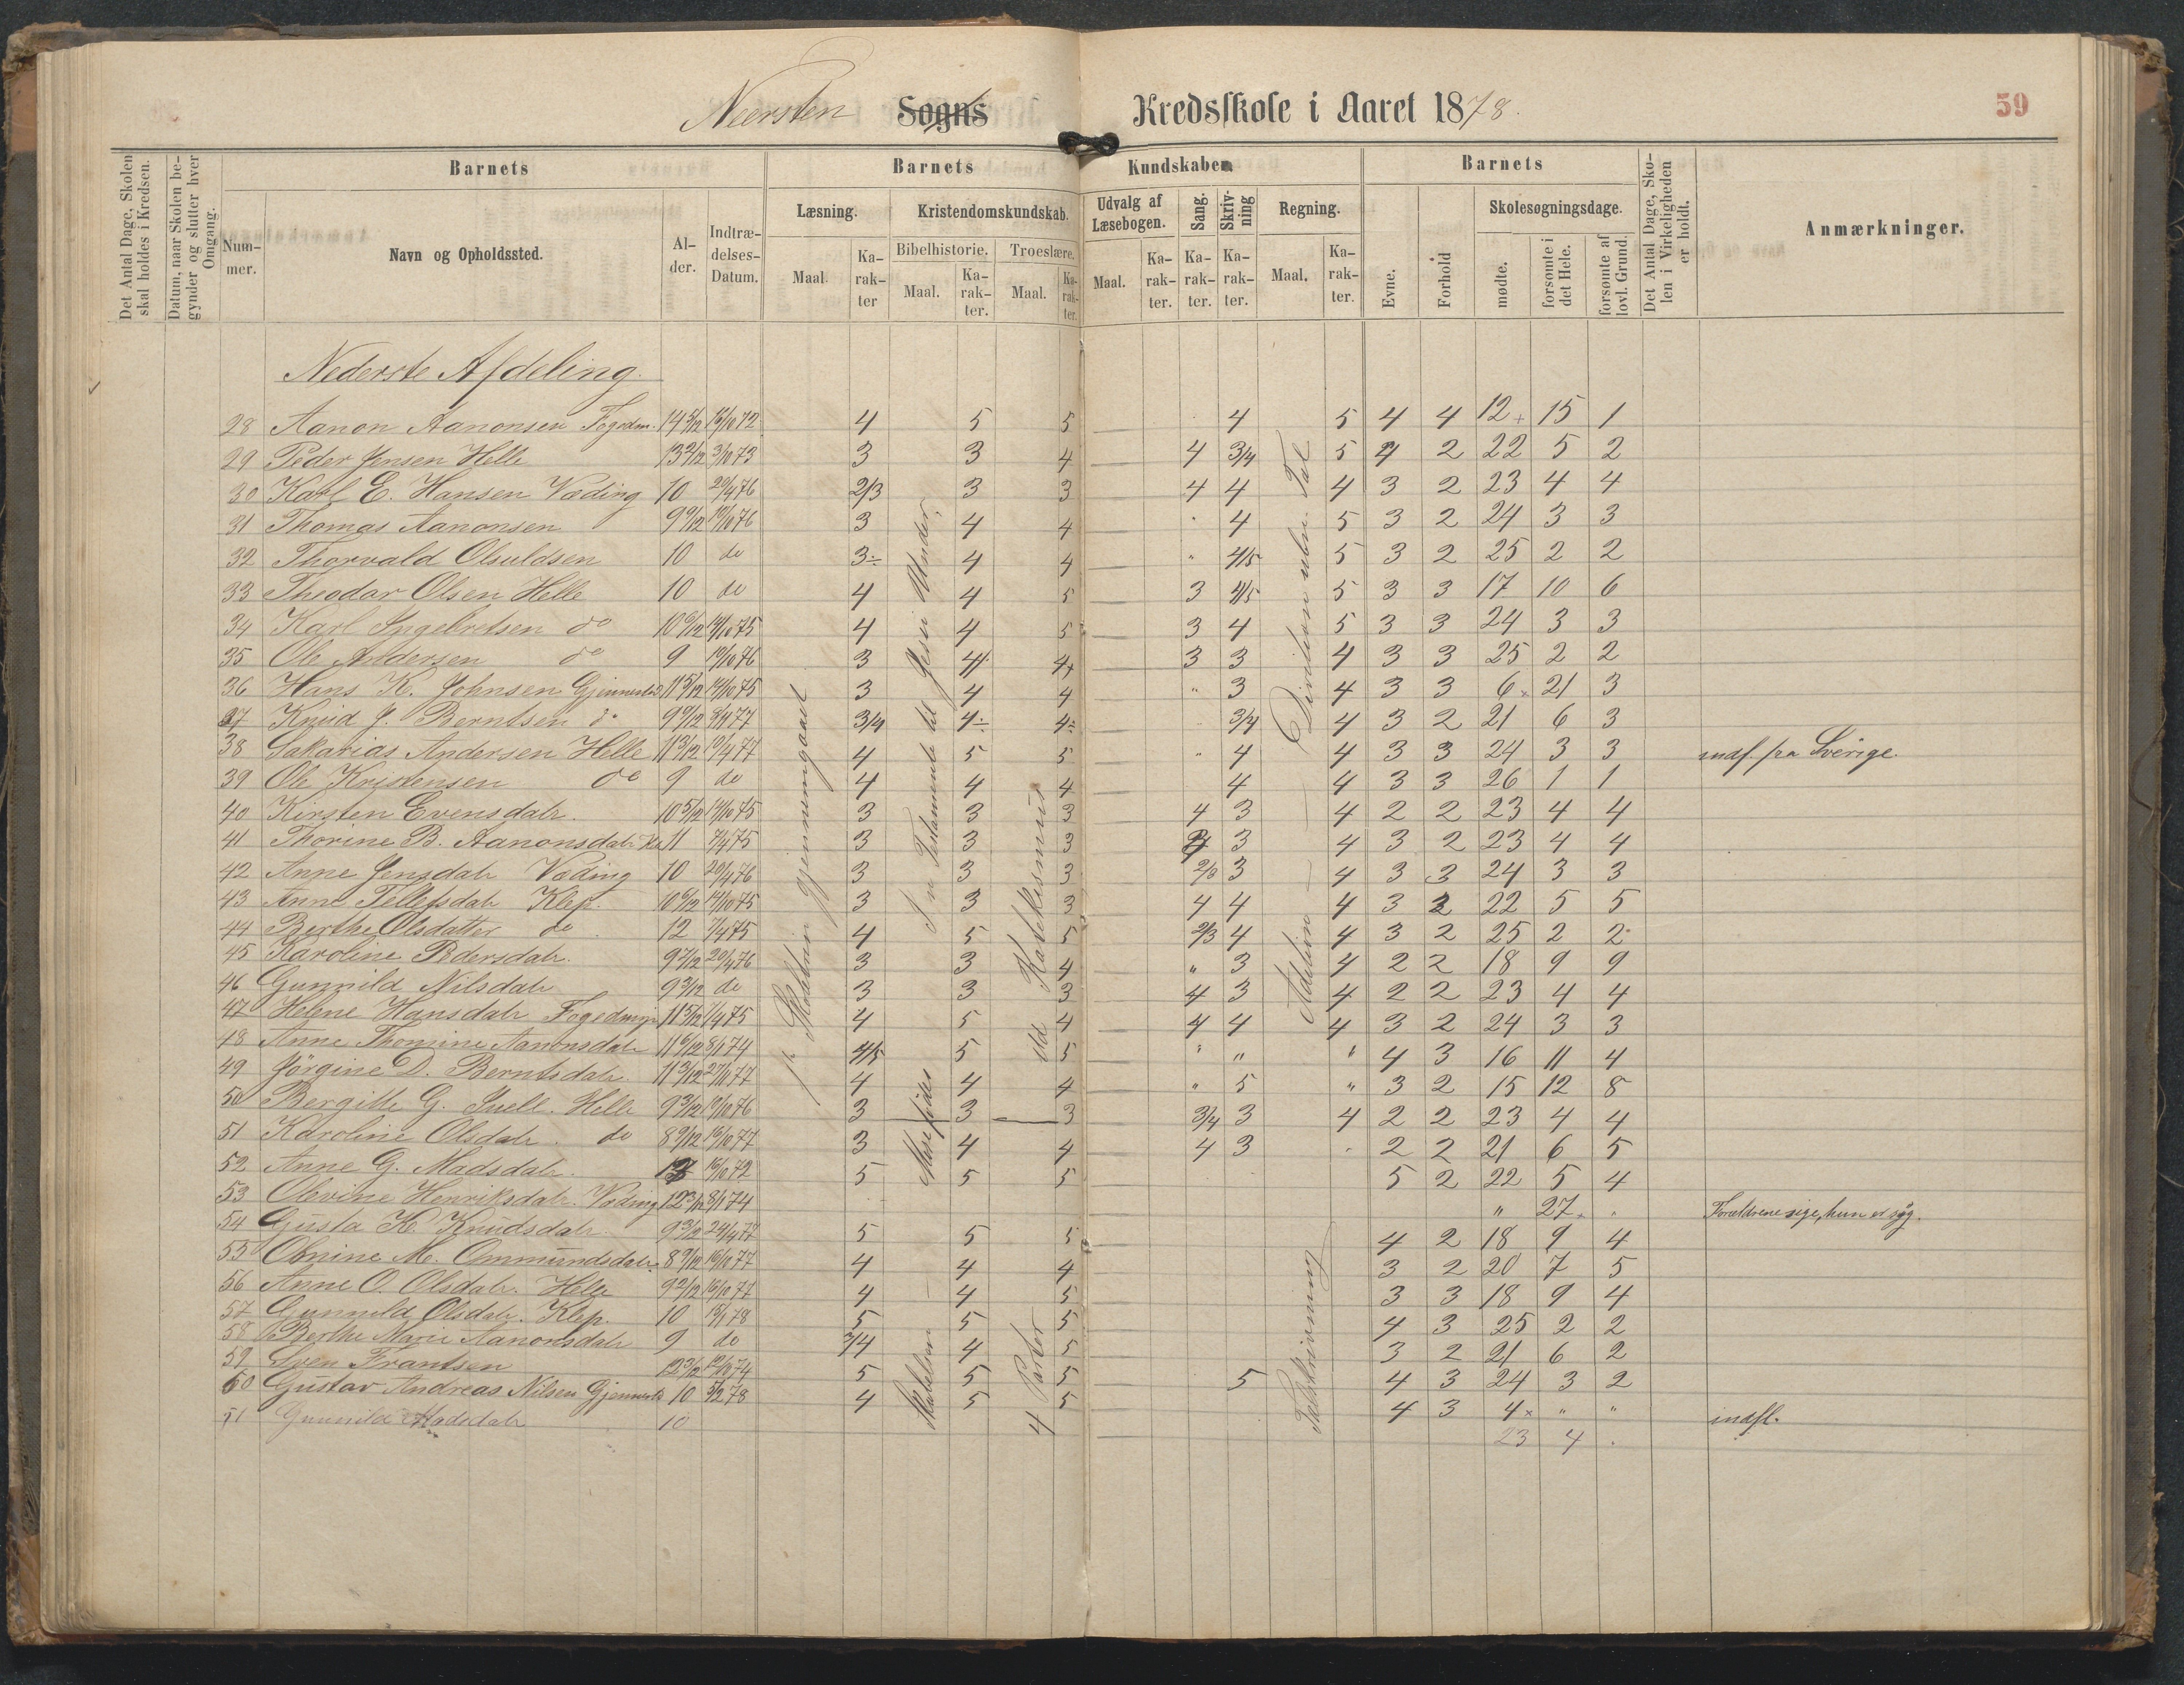 Neersten Sogns Kredsskole i Aaret 1878.
59
Det Antal Dage, Skolen skal holdes i Kredsen.
Datum, naar Skolen begynder og slutter hver Omgang.
Barnets
Barnets Kundskaber.
Barnets
Det Antal Dage, Skolen i Virkeligheden er holdt.
Anmærkninger.
Nummer.
Navn og Opholdssted.
Alder.
Indtrædelses-Datum.
Læsning.
Kristendomskundskab.
Udvalg af Læsebogen.
Sang.
Skrivning
Regning.
Evne.
Forhold
Skolesøgningsdage.
Bibelhistorie.
Troeslære.
Maal. Karakter
Maal. Karakter.
Maal. Karakter.
Maal. Karakter.
Karakter.
Karakter.
Maal. Karakter.
mødte.
forsømte i det Hele.
forsømte af lovl. Grund.
Nederste Afdeling.
28 Aanon Aanonsen Fogedm. 14 5/12 4 5 5 4 5 4 4 12+ 15 1
29 Peder Jensen Helle 3 3 4 4 3/4 5 4 2 22 5 2
30 Karl E. Hansen Væding 10 20/4 76 2/3 3 3 4 4 4 3 2 23 4 4
31 Thomas Aanonsen 3 4 4 4 5 3 2 24 3 3
32 Thorvald Olsuldsen 10 do 3÷ 4 4 " 4/5 5 3 2 25 2 2
33 Theodor Olsen Helle 10 do 4 4 5 3 4/5 5 3 3 17 10 6
34 Karl Ingebretsen do 4 4 5 3 4 5 3 3 24 3 3
35 Ole Andersen do 9 3 4 4+ 3 3 4 3 3 25 2 2
36 Hans K. Johnsen 3 4 4 " 3 4 3 3 6× 21 3
37 Knud J. Berntsen do 3/4 4÷ 4÷ 3/4 4 3 2 21 6 3
38 Sakarias Andersen Helle 4 5 5 " 4 4 3 3 24 3 3 indf. fra Sverige.
39 Ole Kristensen do 9 do 4 4 4 4 4 3 3 26 1 1
40 Kirsten Evensdatr. 3 3 3 4 3 4 2 2 23 4 4
41 Thorine B. Aanonsdatr 11 7/4 75 3 3 3 3 4 3 2 23 4 4
42 Anne Jensdatr Væding 10 20/4 76 3 3 3 2/3 3 4 3 3 24 3 3
43 Anne Tellefsdatr Klep. 3 3 3 4 4 4 3 2 22 5 5
44 Berthe Olsdatter do 12 7/4 75 4 5 5 2/3 4 4 3 2 25 2 2
45 Karoline Pedersdatr. 9 7/12 20/4 76 3 3 4 " 3 4 2 2 18 9 9
46 Gunnild Nilsdatr 9 3/12 do 3 3 3 4 3 4 2 2 23 4 4
47 Helene Hansdatr Fogedmyr 11 5/12 7/4 75 4 5 4 4 4 4 3 2 24 3 3
48 Anne Thomine Aanonsdatr 11 6/12 8/1 74 4/5 5 5 " " " 4 3 16 11 4
49 Jörgine D. Berntsdatr. 11 3/12 4 4 4 " 5 " 3 2 15 12 8
50 Bergitte G. Helle 9 3/12 3 3 3 3/4 3 4 2 2 23 4 4
51 Karoline Olsdatr. do 8 9/12 16/10 77 3 4 4 4 3 2 2 21 6 5
52 Anne G. Madsdatr. 16/10 72 5 5 5 5 2 22 5 4
53 Olevine Henriksdatr. Væding 12 3/12 8/1 74 " 27. " Forældrene sige, hun er syg.
54 Gusta K. Knudsdatr. 9 3/12 24/4 77 5 5 5 4 2 18 9 4
55 M. Ommundsdatr. 8 9/12 16/10 77 4 4 4 3 2 20 7 5
56 Anne O. Olsdatr. Helle 16/10 77 4 4 5 3 3 18 9 4
57 Gunnild Olsdatr. Klep. 10 5 5 5 4 3 25 2 2
58 Berthe Marie Aanonsdatr 9 do 3/4 4 5 3 2 21 6 2
59 Sven Frantsen 5 5 5 5 4 3 24 3 2
60 Gustav Andreas Nilsen 10 78 4 5 5 4 3 4× " " indfl.
61 Gunnild Madsdatr 10 23 4 .
Skolebrev gjennemgaaet
Jesu Under,
I ny Testamente til
Mose fødes
Skabelsen –
Katekismus
4 Parter
Division ube. Tal
Addition –
Talskrivning